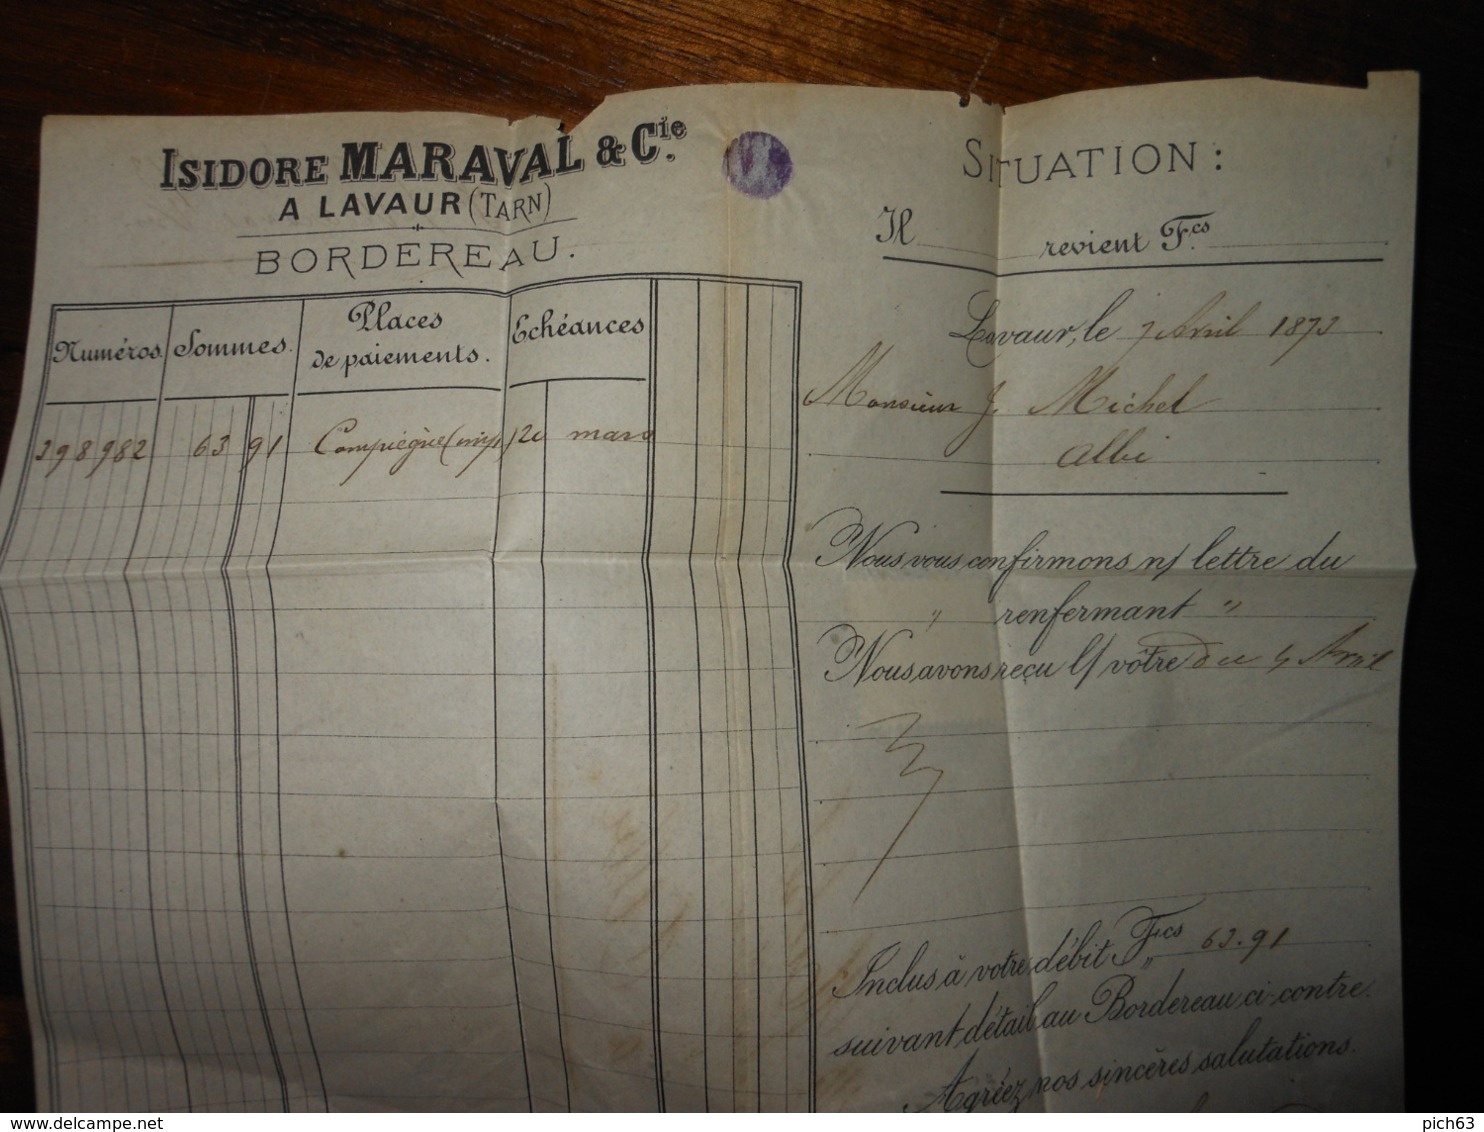 ISIDORE MARAVAL & Cie.
A LAVAUR (TARN)
BORDEREAU.
Numéros. Sommes. Places de paiements. Echéances
398982 63 91 Compiègne 20 mars
SITUATION :
Il revient F.cs
Lavaur, le 7 Avril 1873
Monsieur J. Michel
Albi
Nous vous confirmons n/ lettre du
" renfermant "
Nous avons reçu l/ vôtre du 4 Avril
Inclus à votre débit F.cs 63.91
suivant détail au Bordereau ci-contre.
Agréez nos sincères salutations.
delcampe.net
pich63